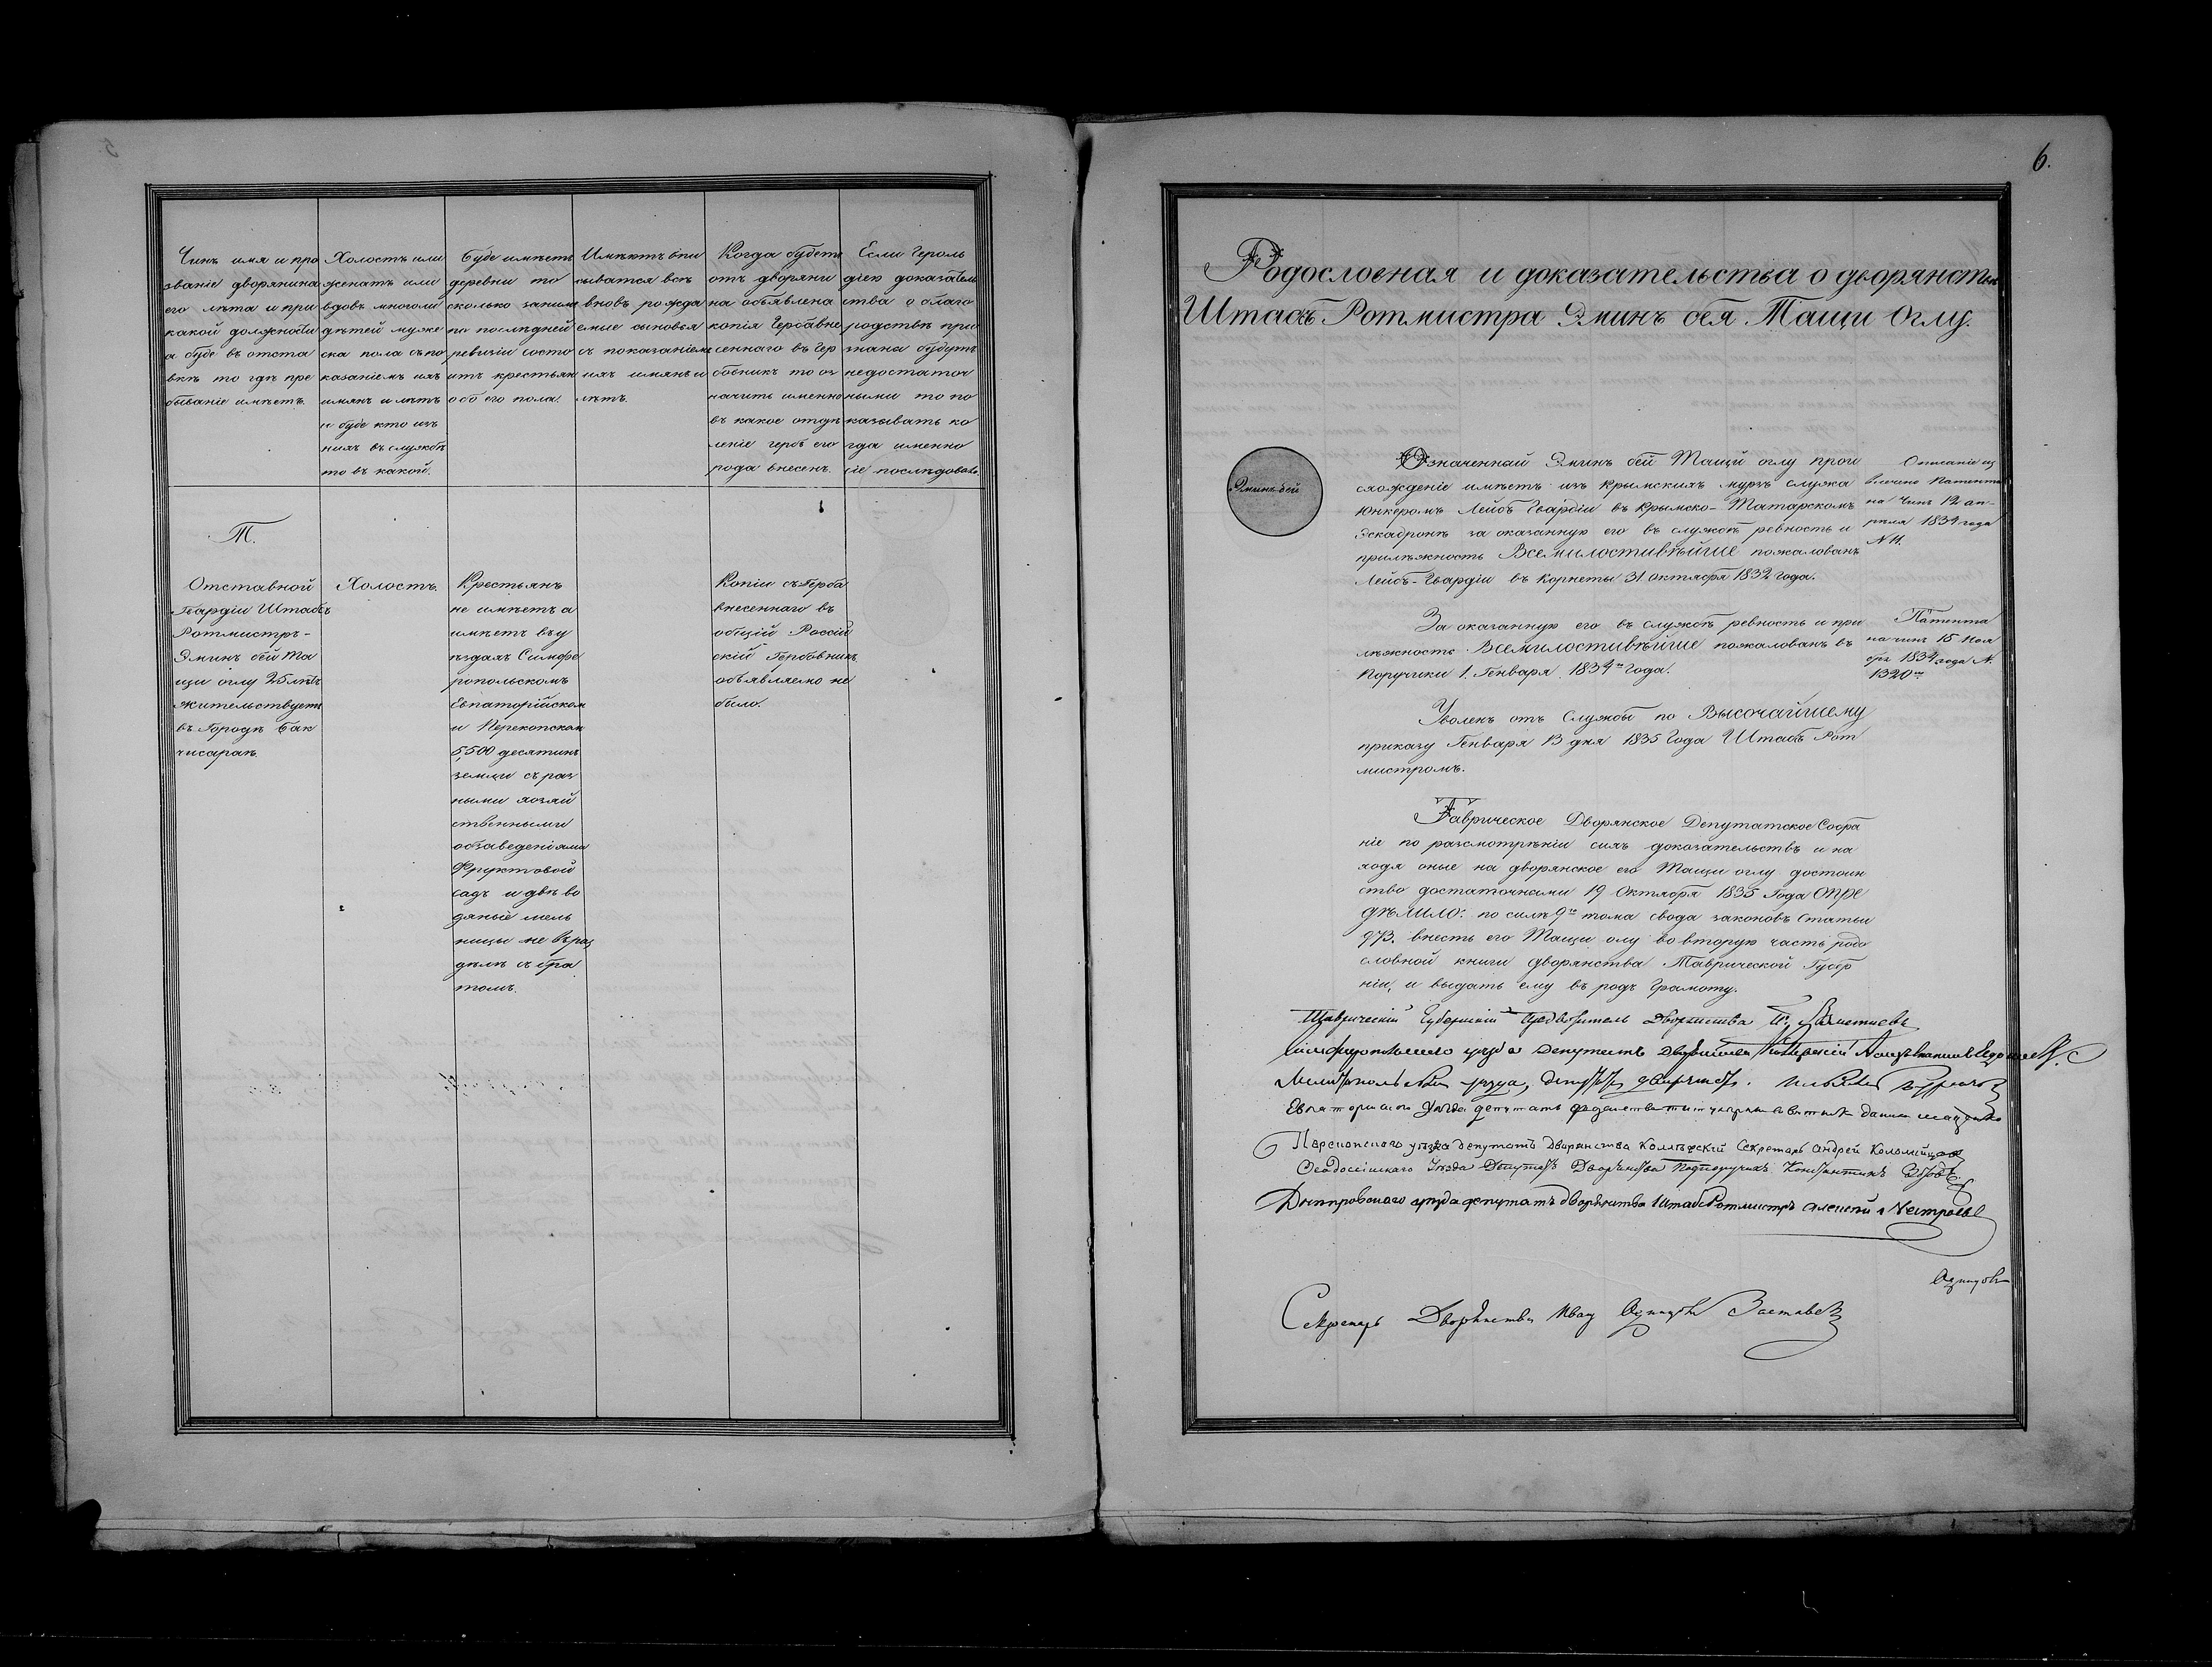 Чинъ имя и про
званіе дворянина
его лѣта и при
какой должности
а буде въ отста
вкѣ то гдѣ пре
бываніе имѣетъ.
Холостъ или
женатъ или
вдовъ многоли
дѣтей муже
ска пола съ по
казаніемъ ихъ
имянъ и лѣтъ
и буде кто изъ
нихъ въ службѣ
то въ какой.
Буде имѣетъ
деревни то
сколько за ними
по послѣдней
ревизіи состо
итъ крестьян
обо его пола.
Имѣютъ впи
сыватся всѣ
вновь рожда
емые сыновья
съ показаніемъ
ихъ имянъ и
лѣтъ.
Когда будетъ
отъ дворяни
на объявлена
копія Герба вне
сеннаго въ Гер
бовникъ то оз
начить именно
въ какое отдѣ
леніе гербъ его
рода внесенъ.
Если Героль
діею доказатель
ства о благо
родствѣ при
знаны будутъ
недостаточ
ными то по
казывать ко
гда именно
сіе послѣдовало.
Т.
Отставной
Гвардіи Штабъ
Ротмистръ-
Эминъ бей Та
щи оглу 25 лѣтъ
жительствуетъ
въ Городѣ Бак
чисараѣ.
Холостъ.
Крестьянъ
не имѣетъ а
имѣетъ въ у
ѣздахъ Симфе
ропольскомъ
Евпаторійском
и Перекопском
5,500 десятинъ
земли съ раз
ными хозяй
ственными
обзаведеніями
Фруктовой
садъ и двѣ во
дяные мель
ницы не въ раз
дѣлѣ съ бра
томъ.
Копіи съ Герба
внесеннаго въ
общій Россій
скій Гербовникъ
объявляемо не
было.
6.
Родословная и доказательства о дворянствѣ
Штабъ Ротмистра Эминъ бея Тащи Оглу.
Эминъ бей
Означенный Эминъ бей Тащи оглу прои
схожденіе имѣетъ изъ крымскихъ мурзъ служа
Юнкеромъ Лейбъ Гвардіи въ Крымско-Татарскомъ
Эскадронѣ за оказанную его въ службѣ ревность и
прилѣжность Всемилостивѣйше пожалованъ
Лейбъ-Гвардіи въ Корнеты 31 октября 1832 года.
Описаніе из
влечено Патента
на Чинъ 12 ап-
рѣля 1834 года
N 11.
За оказанную его въ службѣ ревность и при
лѣжность Всемилостивѣйше пожалованъ въ
Поручики 1. Генваря 1834го Года.
Патента
на чинъ 15 Ноя
бря 1834 года N.
1320го
Уволенъ отъ Службы по Высочайшему
приказу Генваря 13 дня 1835 Года Штабъ Рот
мистромъ.
Таврическое Дворянское Депутатское Собра
ніе по разсмотрѣніи сихъ доказательствъ и на
ходя оные на дворянское его Тащи оглу достоин
ство достаточными 19 Октября 1835 Года ОПРЕ
ДѢЛИЛО: по силѣ 9го тома свода законовъ Статьи
973. внесть его Тащи олу во вторую часть родо
словной книги дворянства Таврической Губер
ніи, и выдать ему въ родъ Грамоту.
Таврическій Губернскій Предводитель Дворянства
уѣзда Депутатъ Дворянства
уѣзда, депутатъ дворянства.
уѣзда депутатъ
уѣзда депутатъ Дворянства Коллежскій Секретарь Андрей Коломійцовъ
Ѳеодосійскаго Уѣзда Депутатъ Дворянства Подпоручикъ Константинъ
Днѣпровскаго уѣзда депутатъ дворянства Штабс Ротмистръ Алексѣй
Секретарь Дворянства Иванъ